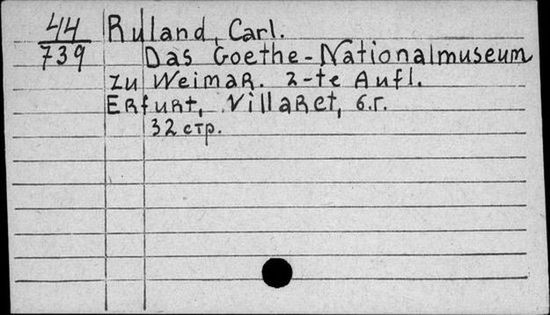 44
739
Ruland, Carl.
Das Goethe-Nationalmuseum
zu Weimar. 2-te Aufl.
Erfurt, Villaret, б.г.
32 стр.